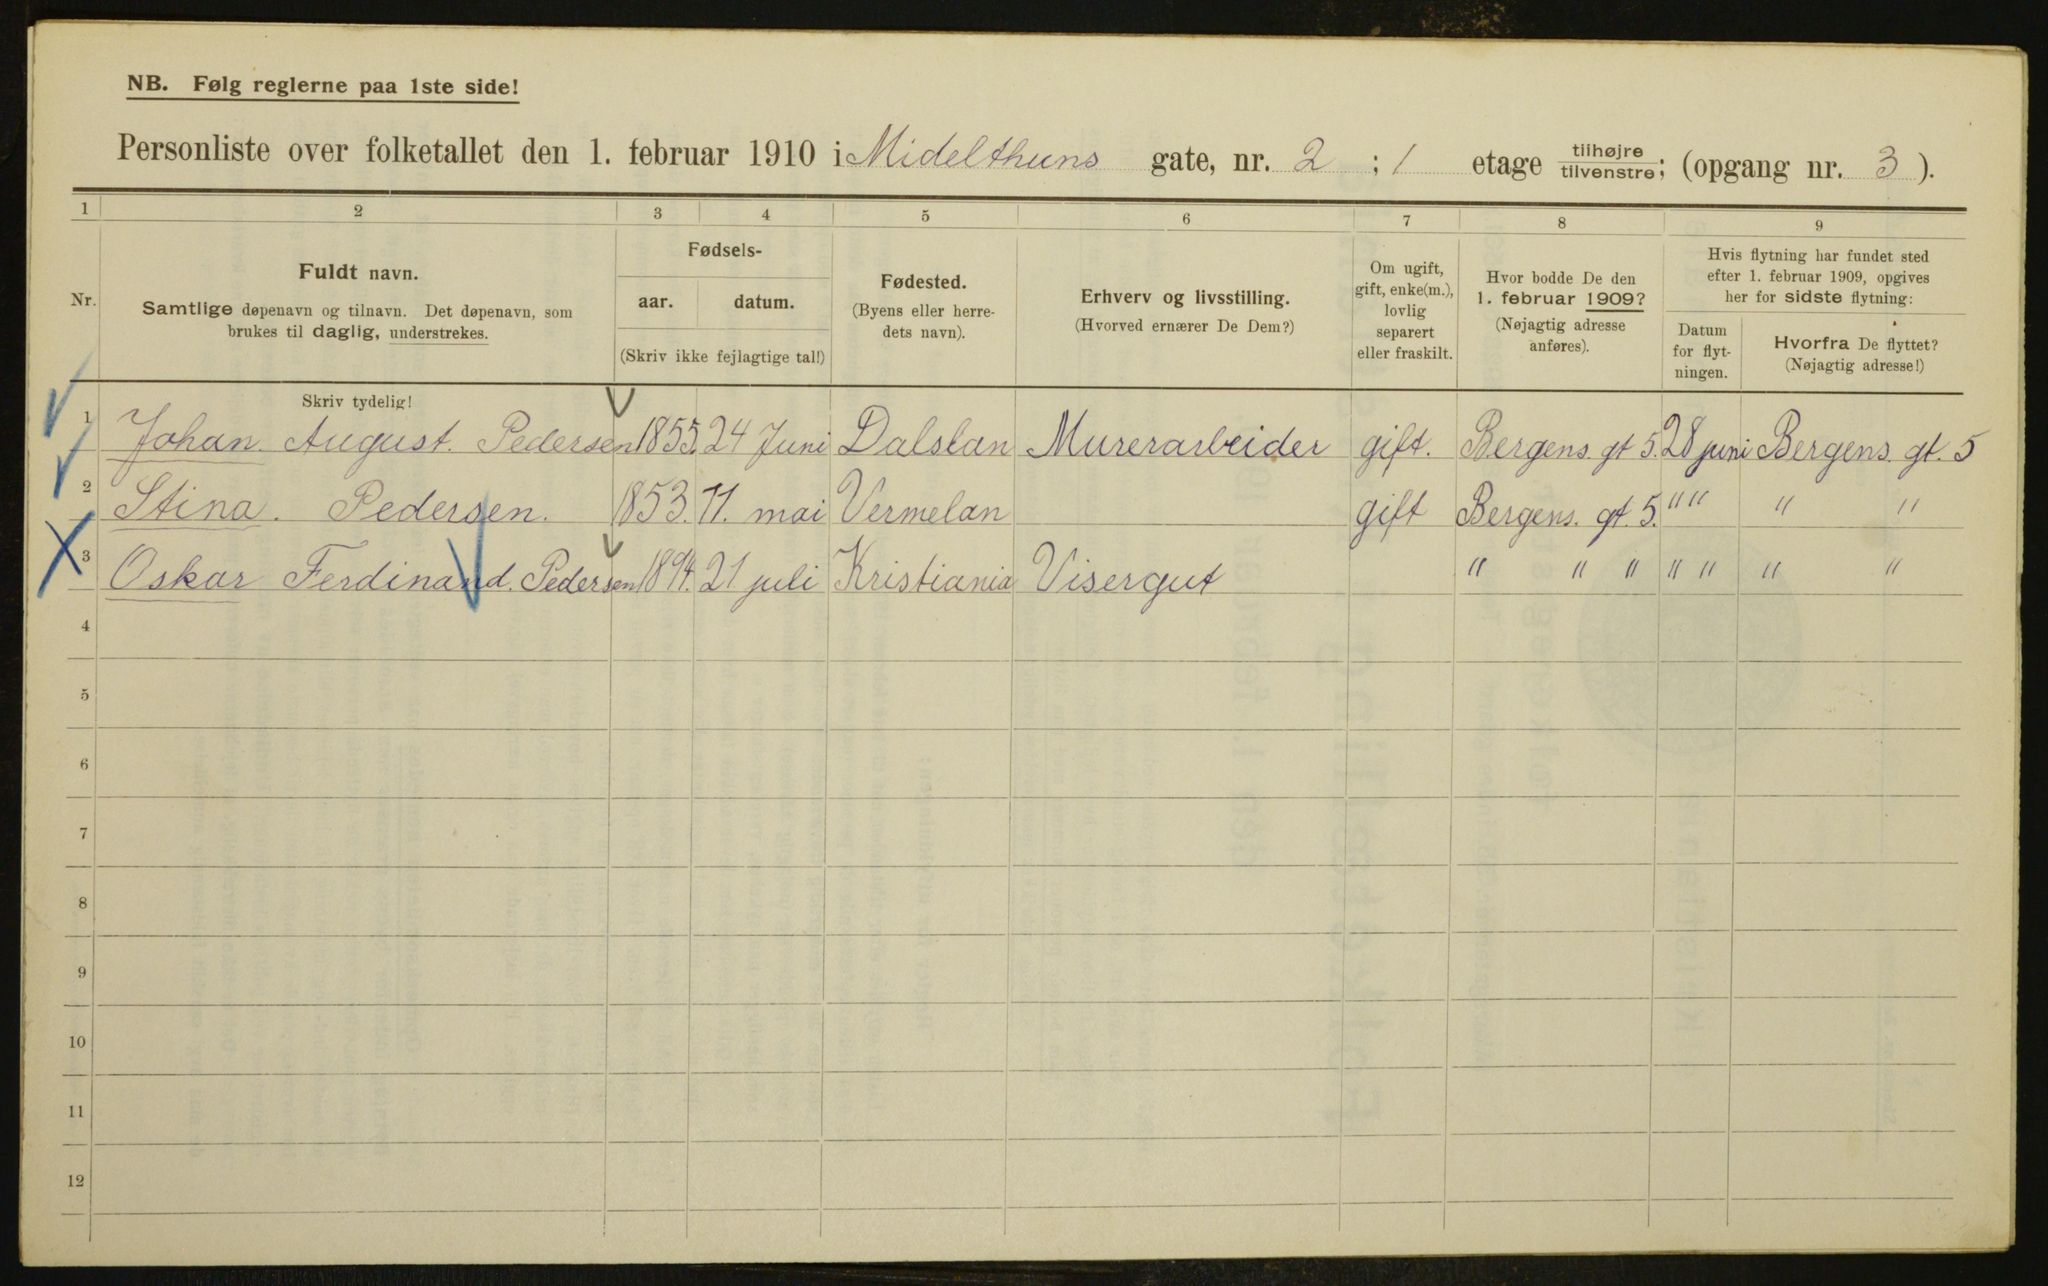 NB. Følg reglerne paa 1ste side!
Personliste over folketallet den 1. februar 1910 i Midelthuns gate, nr. 2 ; 1 etage tilhøjre tilvenstre; (opgang nr. 3 ).
1 2 3 4 5 6 7 8 9
Nr.
Fuldt navn.
Samtlige døpenavn og tilnavn. Det døpenavn, som
brukes til daglig, understrekes.
Fødsels-
aar. datum.
(Skriv ikke fejlagtige tal!)
Fødested.
(Byens eller herre-
dets navn).
Erhverv og livsstilling.
(Hvorved ernærer De Dem?)
Om ugift,
gift, enke(m.),
lovlig
separert
eller fraskilt.
Hvor bodde De den
1. februar 1909?
(Nøjagtig adresse
anføres).
Hvis flytning har fundet sted
efter 1. februar 1909, opgives
her for sidste flytning:
Datum
for flyt-
ningen.
Hvorfra De flyttet?
(Nøjagtig adresse!)
Skriv tydelig!
1 Johan. August. Pedersen 1855. 24 Juni Dalslan Murerarbeider gift. Bergens. gt 5. 28 juni Bergens. gt. 5
2 Stina. Pedersen. 1853. 11. mai Vermelan gift Bergens. gt. 5. " " " "
3 Oskar Ferdinand. Pedersen 1894. 21 juli Kristiania Visergut " " " " " " "
4
5
6
7
8
9
10
11
12